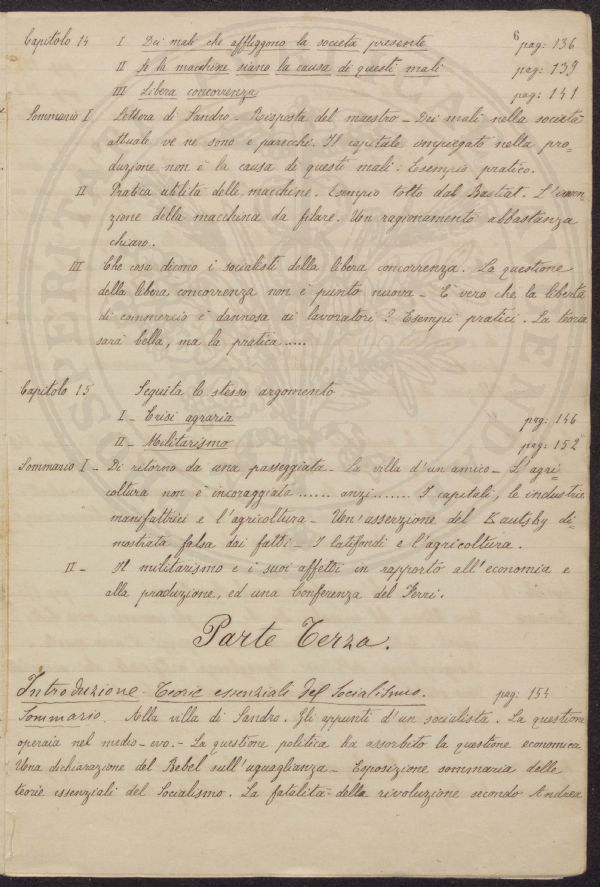 6
Capitolo 14 I Dei mali che affliggono la società presente pag: 136
II Se la macchine siano la causa di questi mali pag: 139
III Libera concorrenza pag: 141
Sommario I Lettera di Sandro - Risposta del maestro - Dei mali nella società
attuale ve ne sono e parecchi. Il capitale impiegato nella pro=
duzione non è la causa di questi mali: Esempio pratico.
II Pratica utilità delle macchine. Esempio tolto dal Bastiat. L'inven=
zione della macchina da filare. Un ragionamento abbastanza
chiaro.
III Che cosa dicono i socialisti della libera concorrenza. La questione
della libera concorrenza non è punto nuova - È vero che la libertà
di commercio è dannosa ai lavoratori? Esempi pratici. La teoria
sarà bella, ma la pratica.....
Capitolo 15 Seguita lo stesso argomento
I - Crisi agraria pag: 146
II - Militarismo pag: 152
Sommario I - Di ritorno da una passeggiata - La villa d'un amico - L'agri=
coltura non è incoraggiata ...... anzi ....... I capitali, le industrie
manifattrici e l'agricoltura - Un'asserzione del Kautsby di=
mostrata falsa dai fatti - I latifondi e l'agricoltura.
II - Il militarismo e i suoi affetti in rapporto all'economia e
alla produzione, ed una Conferenza del Ferri.
Parte Terza.
Introduzione - Teorie essenziali del Socialismo. pag: 154
Sommario. Alla villa di Sandro. Gli appunti d'un socialista. La questione
operaia nel medio-evo. - La questione politica ha assorbito la questione economica
Una dichiarazione del Bebel sull'uguaglianza - Esposizione sommaria delle
teorie essenziali del Socialismo. La fatalità della rivoluzione secondo Andrea